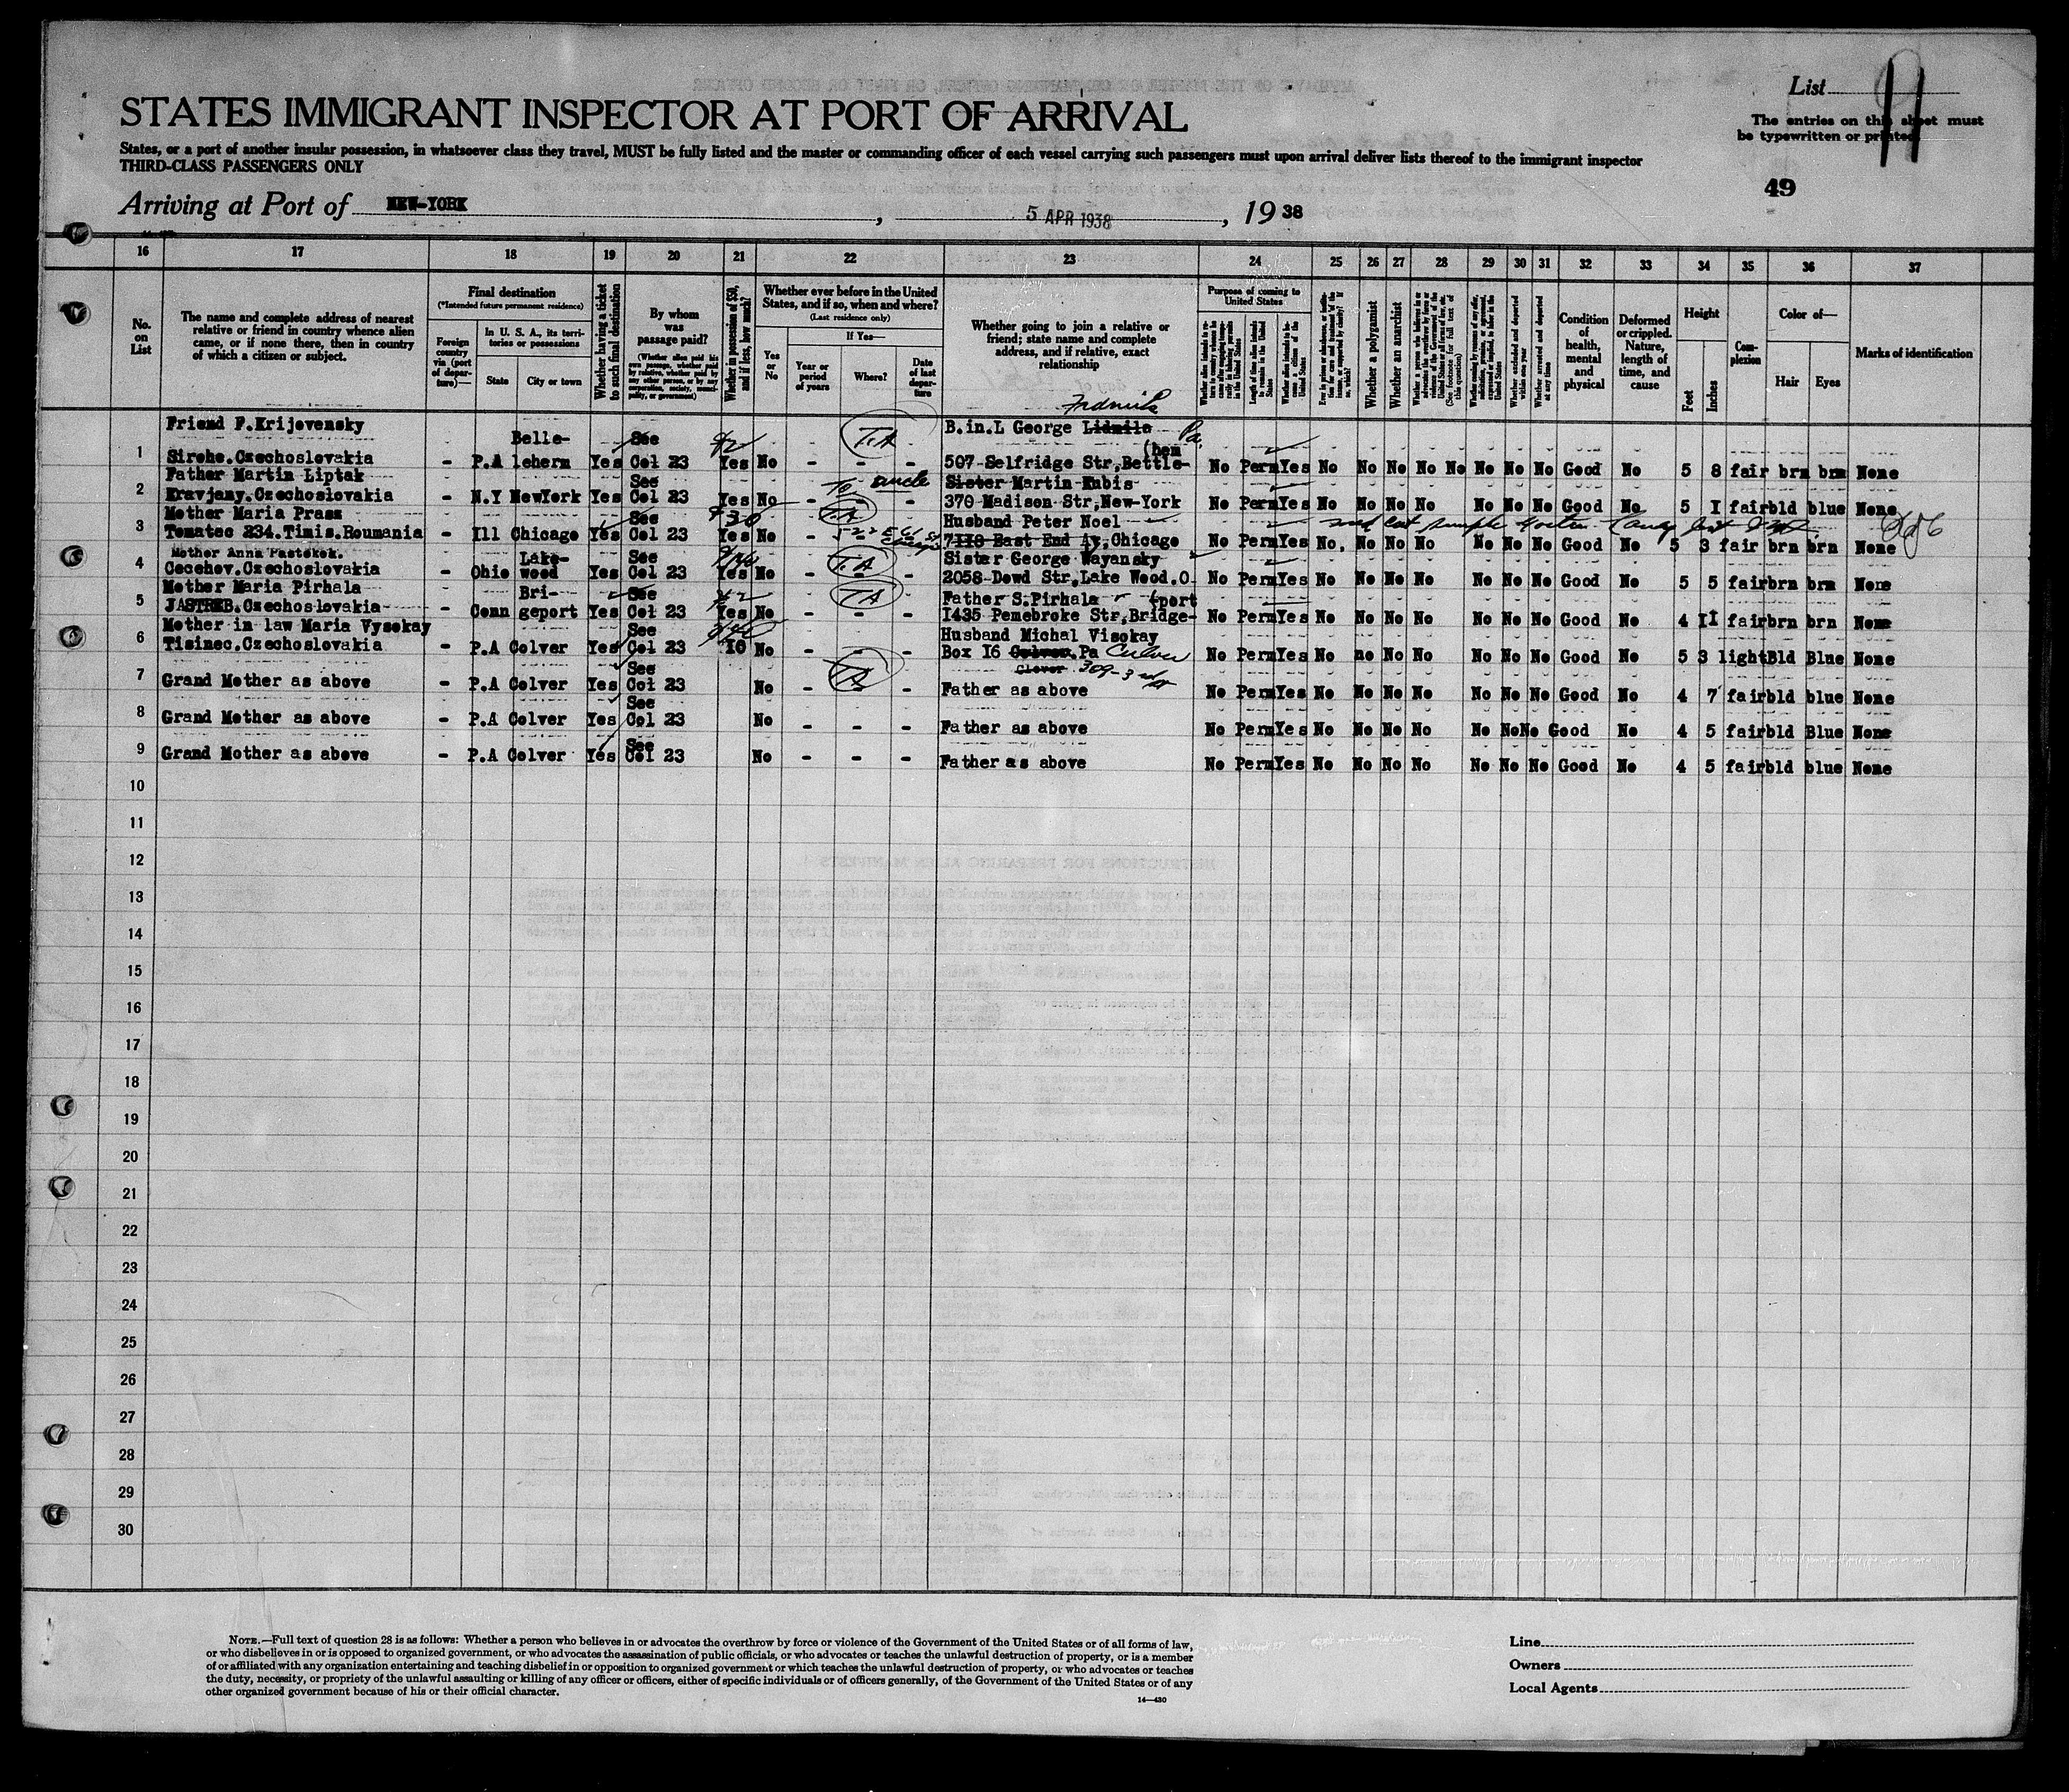 List
The entries on this sheet must
be typewritten or printed
STATES IMMIGRANT INSPECTOR AT PORT OF ARRIVAL
States, or a port of another insular possession, in whatsoever class they travel, MUST be fully listed and the master or commanding officer of each vessel carrying such passengers must upon arrival deliver lists thereof to the immigrant inspector
THIRD-CLASS PASSENGERS ONLY
49
Arriving at Port of NEW-YORK, 5 APR 1938, 19 38
16 17 18 19 20 21 22 23 24 25 26 27 28 29 30 31 32 33 34 35 36 37
No. on List
The name and complete address of nearest relative or friend in country whence alien came, or if none there, then in country of which a citizen or subject.
Final destination
(*Intended future permanent residence)
Foreign country via (port of departure)—
In U. S. A., its territories or possessions
State
City or town
Whether having a ticket to such final destination
By whom was passage paid?
(Whether alien paid his own passage, whether paid by relative, whether paid by any other person, or by any corporation, society, municipality, or government)
Whether in possession of $50, and if less, how much?
Whether ever before in the United States, and if so, when and where?
(Last residence only)
Yes or No
If Yes—
Year or period of years
Where?
Date of last departure
Whether going to join a relative or friend; state name and complete address, and if relative, exact relationship
Purpose of coming to United States
Length of time alien intends to remain in the United States
Whether alien intends to become a citizen of the United States
Whether a polygamist
Whether an anarchist
(See footnote for full text of this question)
Whether arrested and deported at any time
Condition of health, mental and physical
Deformed or crippled. Nature, length of time, and cause
Height
Feet
Inches
Complexion
Color of—
Hair
Eyes
Marks of identification
Friend F.Krijovensky Belle- See TA B.in.L George Lidmila Pa.
1 Sirohe.Czechoslovakia - P.A lehem Yes Col 23 Yes No - - - 507-Selfridge Str,Bettle- (hem No Perm Yes No No No No No No No No Good No 5 8 fair brn brn None
Father Martin Liptak See To uncle Sister Martin Kubis
2 Kravjany.Czechoslovakia - N.Y NewYork Yes Col 23 Yes No - - - 370 Madison Str,New-York No Perm Yes No No No No No No No Good No 5 I fair bld blue None
Mother Maria Prass See $30 TA Husband Peter Noel
3 Tomatec 234.Timis.Roumania - Ill Chicago Yes Col 23 Yes No - 7110 East End Av,Chicago No Perm Yes No. No No No No No No Good No 5 3 fair brn brn None
Mother Anna Pastekok. Lake- See TA Sister George Wayansky
4 Cecehov.Czechoslovakia - Ohio wood Yes Col 23 Yes No - - - 2058-Dowd Str,Lake Wood.O No Perm Yes No No No No No No No Good No 5 5 fair brn brn None
Mother Maria Pirhala Bri- See TA Father S.Pirhala (port
5 JASTREB.Czechoslovakia - Conn geport Yes Col 23 Yes No - - - I435 Pemebroke Str,Bridge- No Perm Yes No No No No No No No Good No 4 II fair brn brn None
Mother in law Maria Vysokay See Husband Michal Visokay
6 Tisinec.Czechoslovakia - P.A Colver Yes Col 23 I0 No - - - Box I6 Colver.Pa Culver No Perm Yes No no No No No No No Good No 5 3 light Bld Blue None
See TA Clover 309-3rd
7 Grand Mother as above - P.A Colver Yes Col 23 No - - - Father as above No Perm Yes No No No No No No No Good No 4 7 fair bld blue None
See
8 Grand Mother as above - P.A Colver Yes Col 23 No - - - Father as above No Perm Yes No No No No No No No Good No 4 5 fair bld Blue None
See
9 Grand Mother as above - P.A Colver Yes Col 23 No - - - Father as above No Perm Yes No No No No No No No Good No 4 5 fair bld blue None
10
11
12
13
14
15
16
17
18
19
20
21
22
23
24
25
26
27
28
29
30
NOTE.—Full text of question 28 is as follows: Whether a person who believes in or advocates the overthrow by force or violence of the Government of the United States or of all forms of law,
or who disbelieves in or is opposed to organized government, or who advocates the assassination of public officials, or who advocates or teaches the unlawful destruction of property, or is a member
of or affiliated with any organization entertaining and teaching disbelief in or opposition to organized government or which teaches the unlawful destruction of property, or who advocates or teaches
the duty, necessity, or propriety of the unlawful assaulting or killing of any officer or officers, either of specific individuals or of officers generally, of the Government of the United States or of any
other organized government because of his or their official character.
14—430
Line
Owners
Local Agents